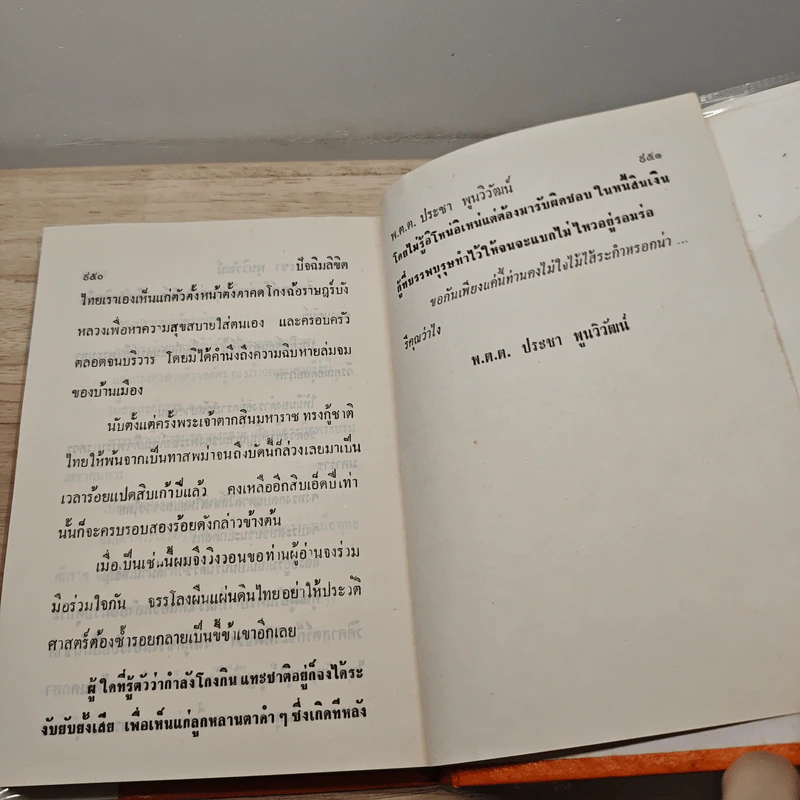 ๙๕๐ ปัจฉิมลิขิต
ไทยเราเองเห็นแก่ตัวตั้งหน้าตั้งตาคดโกงฉ้อราษฎร์บัง
หลวงเพื่อหาความสุขสบายใส่ตนเอง และครอบครัว
ตลอดจนบริวาร โดยมิได้คำนึงถึงความฉิบหายล่มจม
ของบ้านเมือง
นับตั้งแต่ครั้งพระเจ้าตากสินมหาราช ทรงกู้ชาติ
ไทยให้พ้นจากเป็นทาสพม่าจนถึงบัดนี้ก็ล่วงเลยมาเป็น
เวลาร้อยแปดสิบเก้าปีแล้ว คงเหลืออีกสิบเอ็ดปีเท่า
นั้นก็จะครบรอบสองร้อยดังกล่าวข้างต้น
เมื่อเป็นเช่นนี้ผมจึงวิงวอนขอท่านผู้อ่านจงร่วม
มือร่วมใจกัน จรรโลงผืนแผ่นดินไทยอย่าให้ประวัติ
ศาสตร์ต้องซ้ำรอยกลายเป็นขี้ข้าเขาอีกเลย
ผู้ใดที่รู้ตัวว่ากำลังโกงกิน แทะชาติอยู่ก็จงได้ระ
งับยับยั้งเสีย เพื่อเห็นแก่ลูกหลานตาดำ ๆ ซึ่งเกิดทีหลัง
พ.ต.ต. ประชา พูนวิวัฒน์ ๙๕๑
โดยไม่รู้อิโหน่อิเหน่แต่ต้องมารับผิดชอบ ในหนี้สินเงิน
กู้ที่บรรพบุรุษทำไว้ให้จนจะแบกไม่ไหวอยู่รอมร่อ
ขอกันเพียงแค่นี้ท่านคงไม่ใจไม้ไส้ระกำหรอกน่า ...
รึคุณว่าไง
พ.ต.ต. ประชา พูนวิวัฒน์